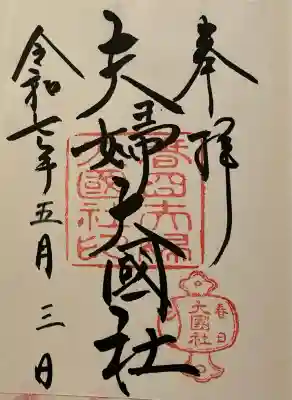 奉拝
夫婦大國社
令和七年五月三日
春日夫婦大國社印
春日
大國社